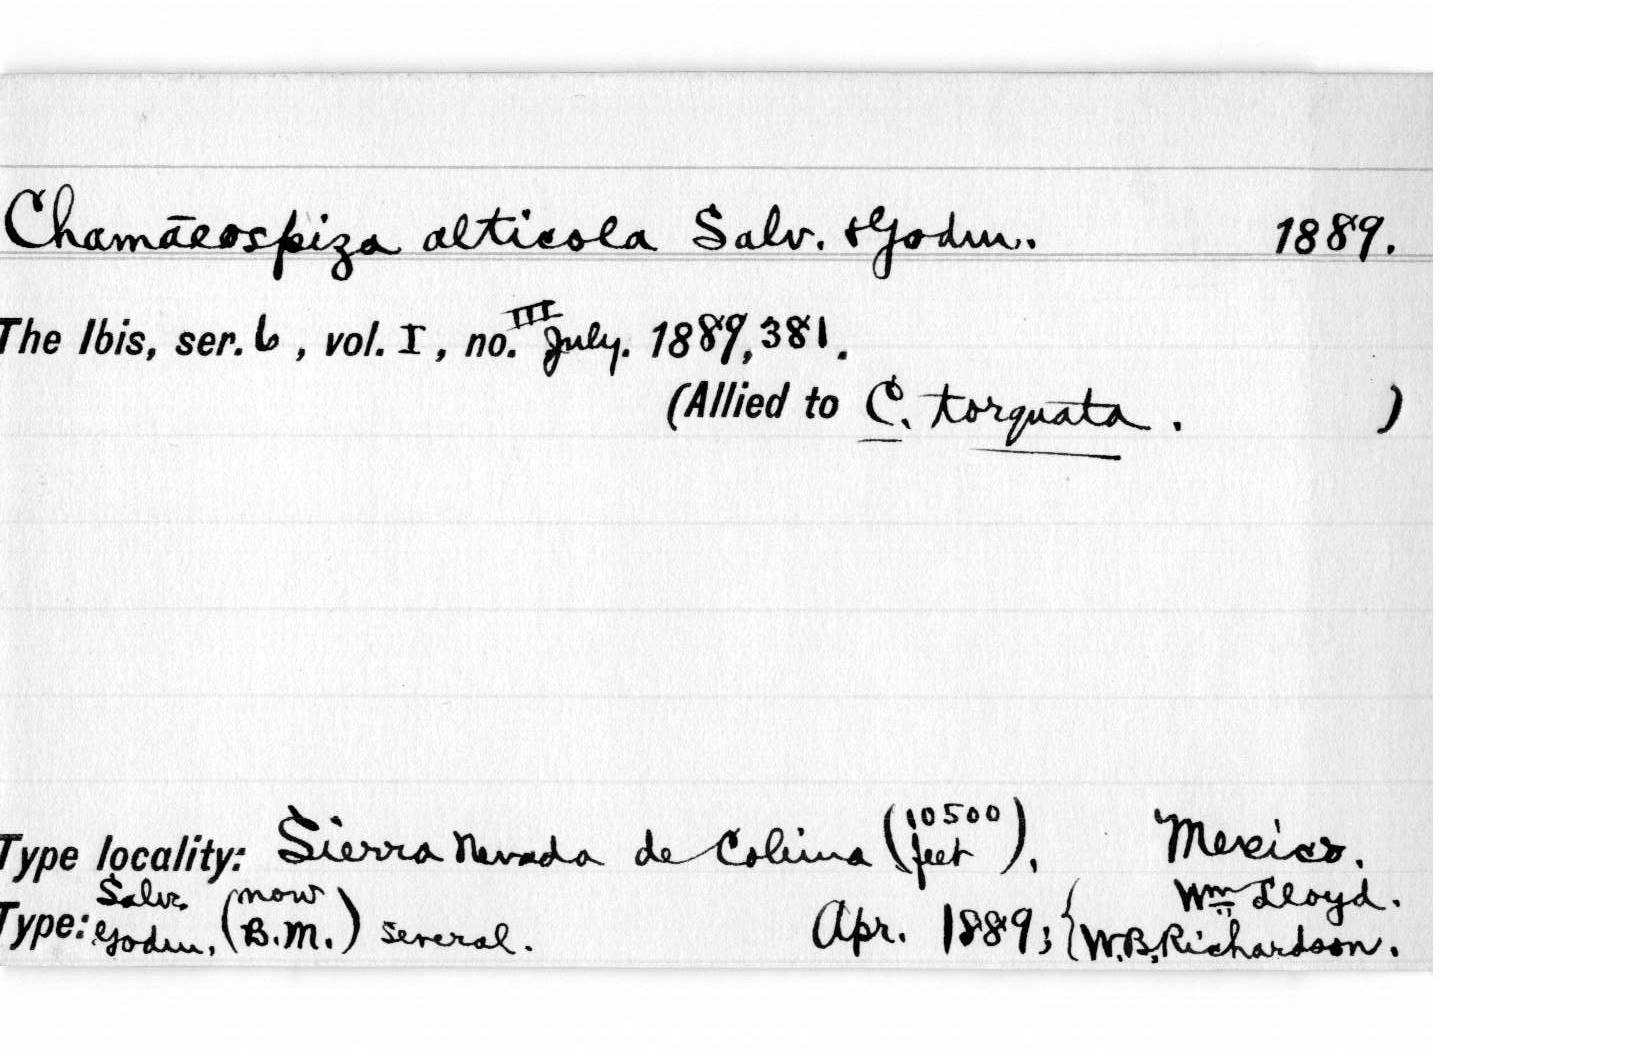 Chamāeospiza alticola Salv. & Godm. 1889.
The Ibis, ser. 6, vol. I, no. III July. 1889, 381.
(Allied to C. torquata. )
Type locality: Sierra Nevada de Colima (10500 feet), Mexico.
Type: Salv. Godm, (now B.M.) several. Apr. 1889; { Wm Lloyd. W.B. Richardson.